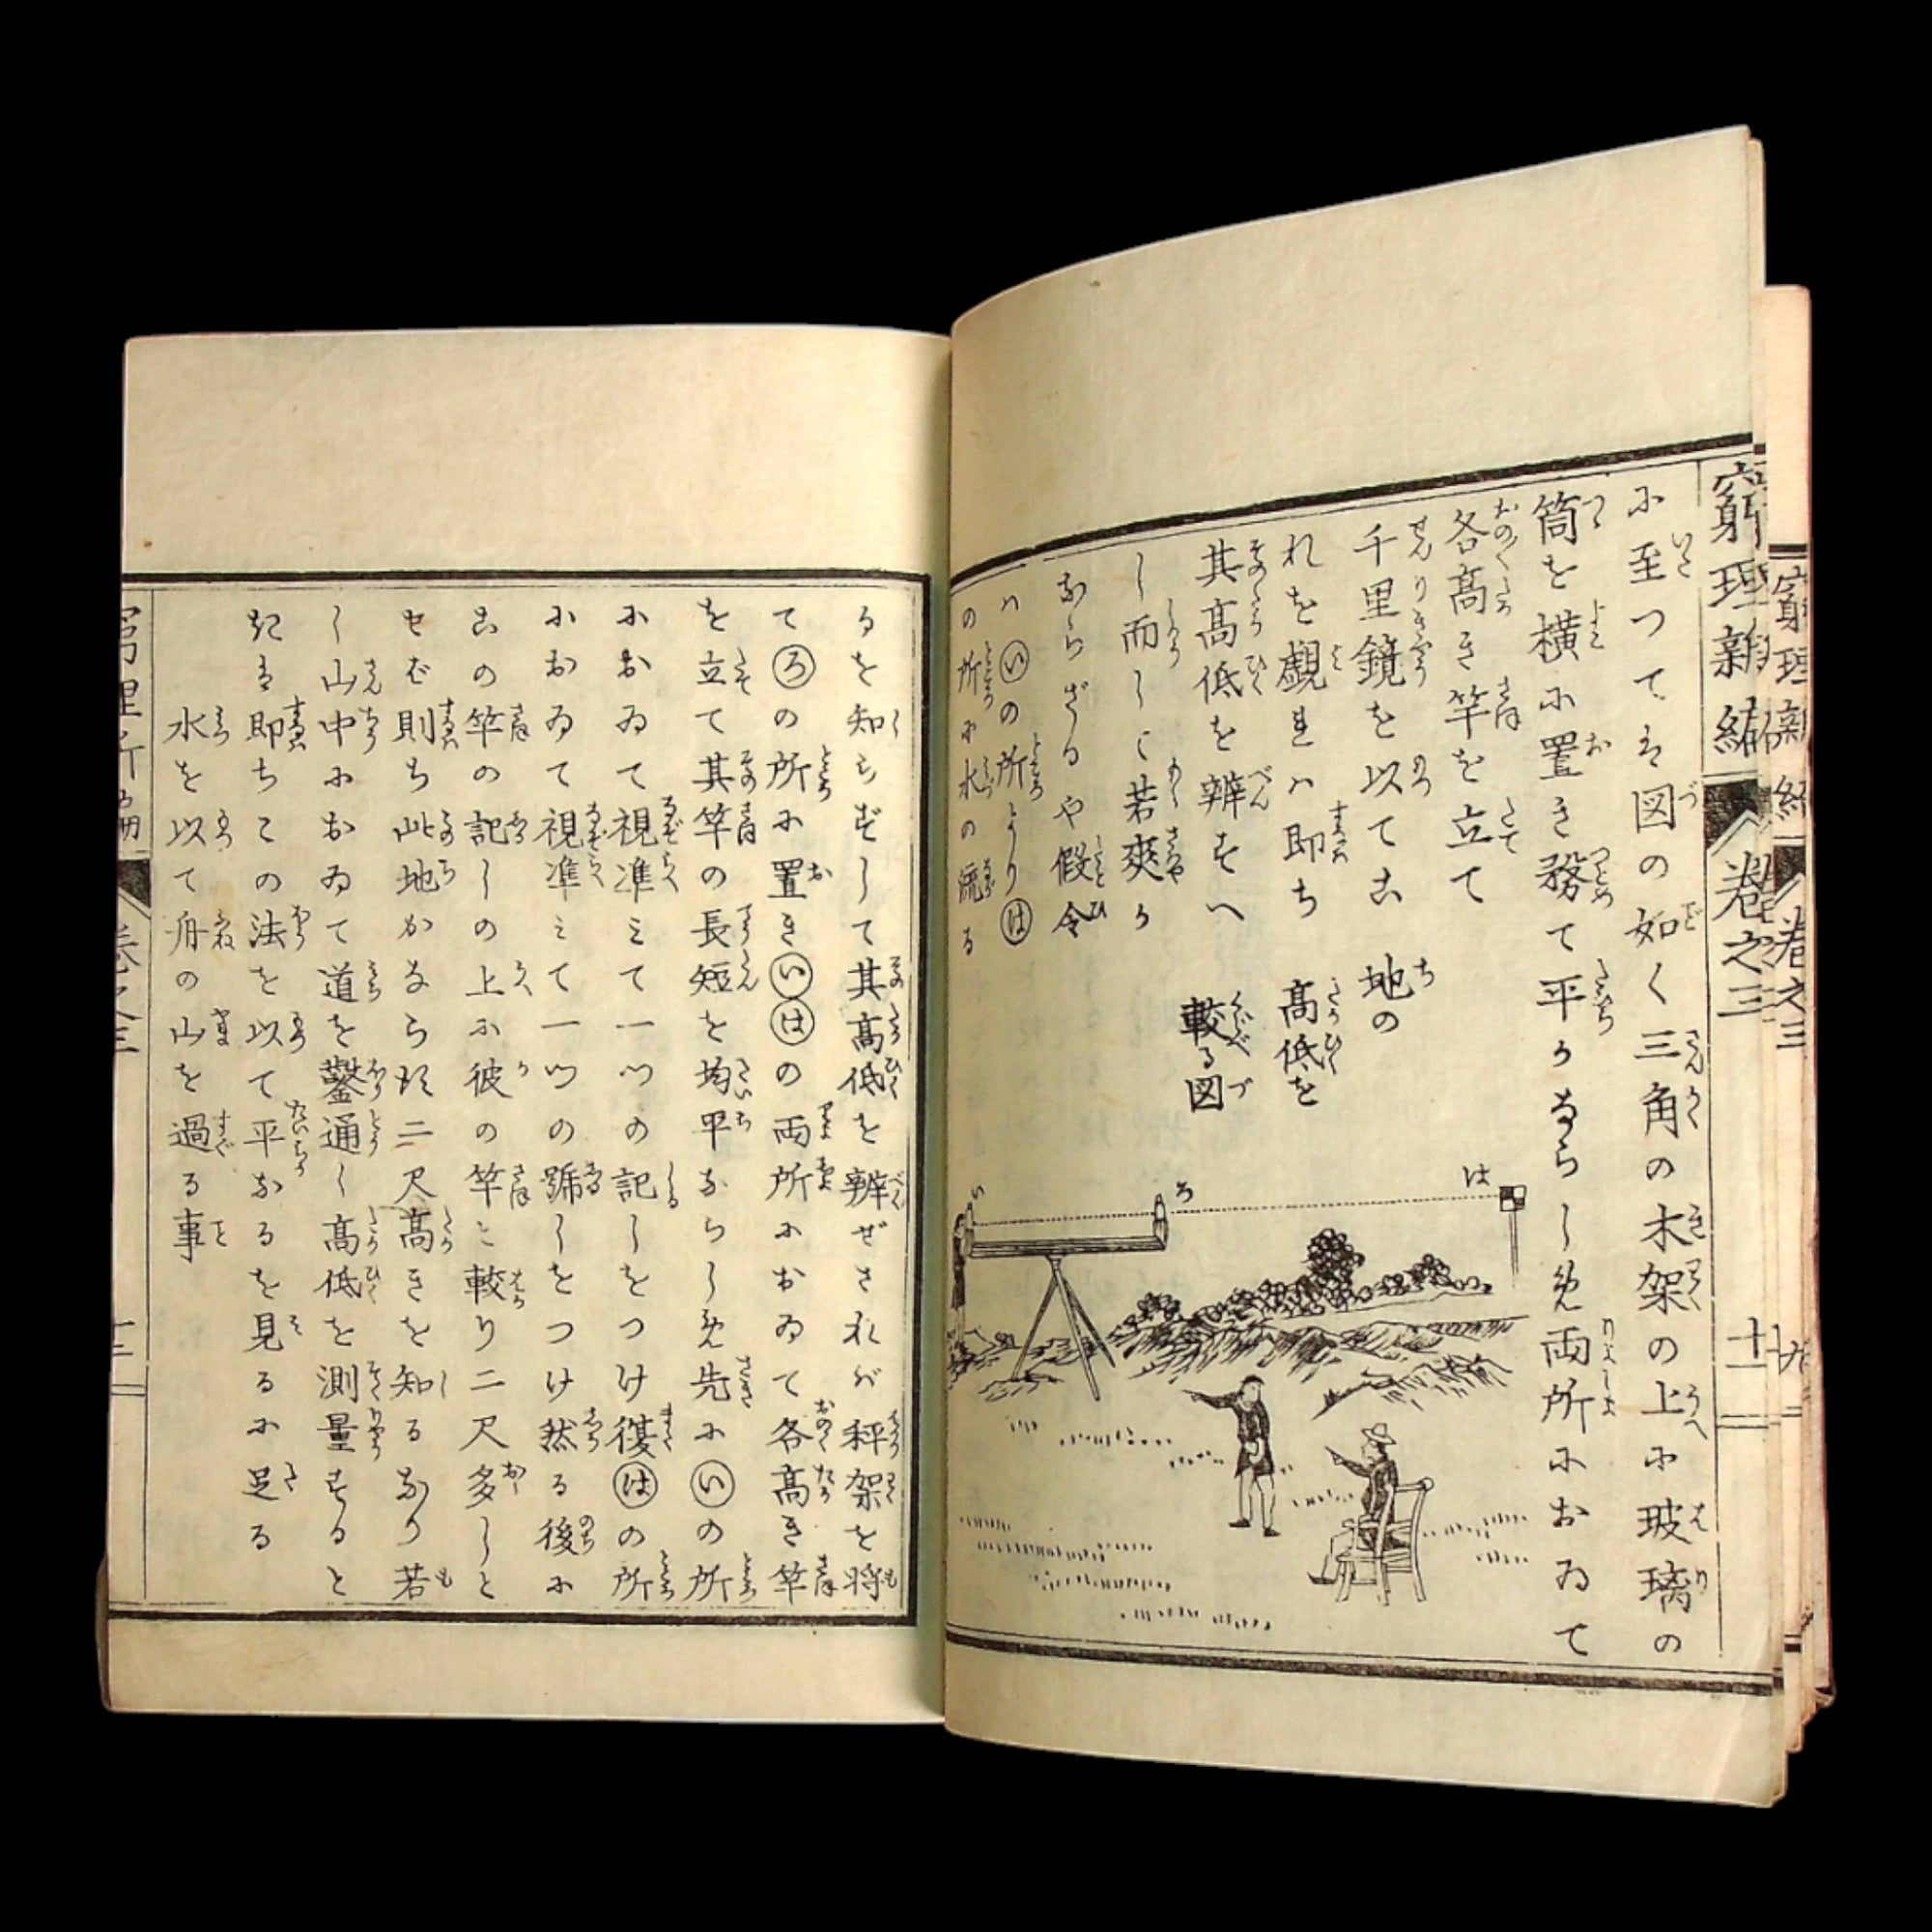 窮理新編 巻之三 十一
に至つては図の如く三角の木架の上に玻璃の
筒を横に置き務て平かならしめ両所におゐて
各高き竿を立て
千里鏡を以てこ
れを觀れハ即ち
其高低を辨ずへ
し而しく若爽か
ならざるや假令
ハ㋑の所より㋩
の所に水の流る
地の
高低を
較る図
い
ろ
は
るを知らずして其高低を辨ぜされバ秤架を将
て㋺の所に置き㋑㋩の両所におゐて各高き竿
を立て其竿の長短を均平ならしめ先に㋑の所
におゐて視準ミて一ツの記しをつけ復㋩の所
におゐて視準ミて一ツの號しをつけ然る後に
この竿の記しの上に彼の竿と較り二尺多しと
せば則ち此地かならず二尺高きを知るなり若
し山中におゐて道を鑿通し高低を測量すると
きは即ちこの法を以て平なるを見るに足る
水を以て舟の山を過る事
窮理新編 巻之三
巻之三